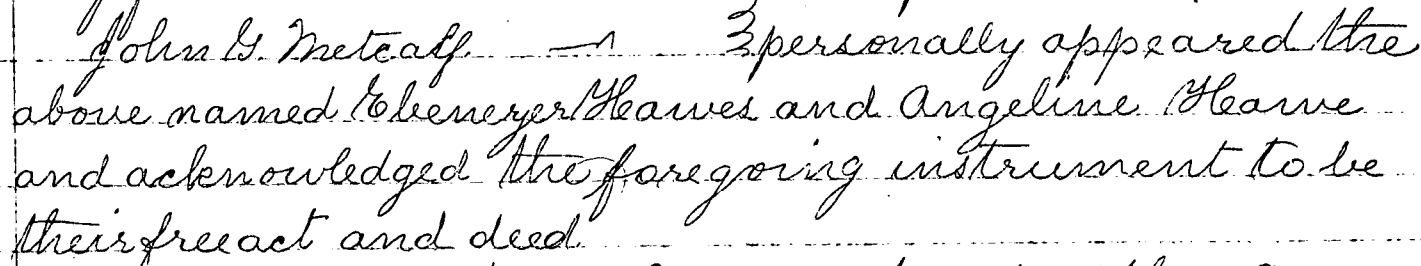 John G. Metcalf — } personally appeared the
above named Ebenezer Hawes and Angeline Hawe
and acknowledged the foregoing instrument to be
their free act and deed